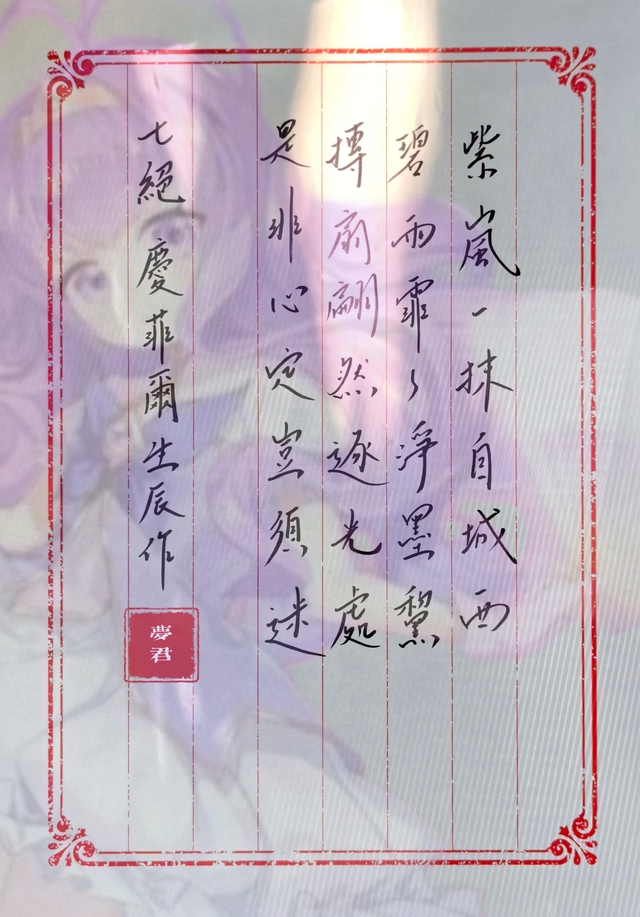 紫嵐一抹自城西
碧雨霏々淨墨黧
摶扇翩然逐光處
是非心定豈須迷
七絕 慶菲爾生辰作
夢君